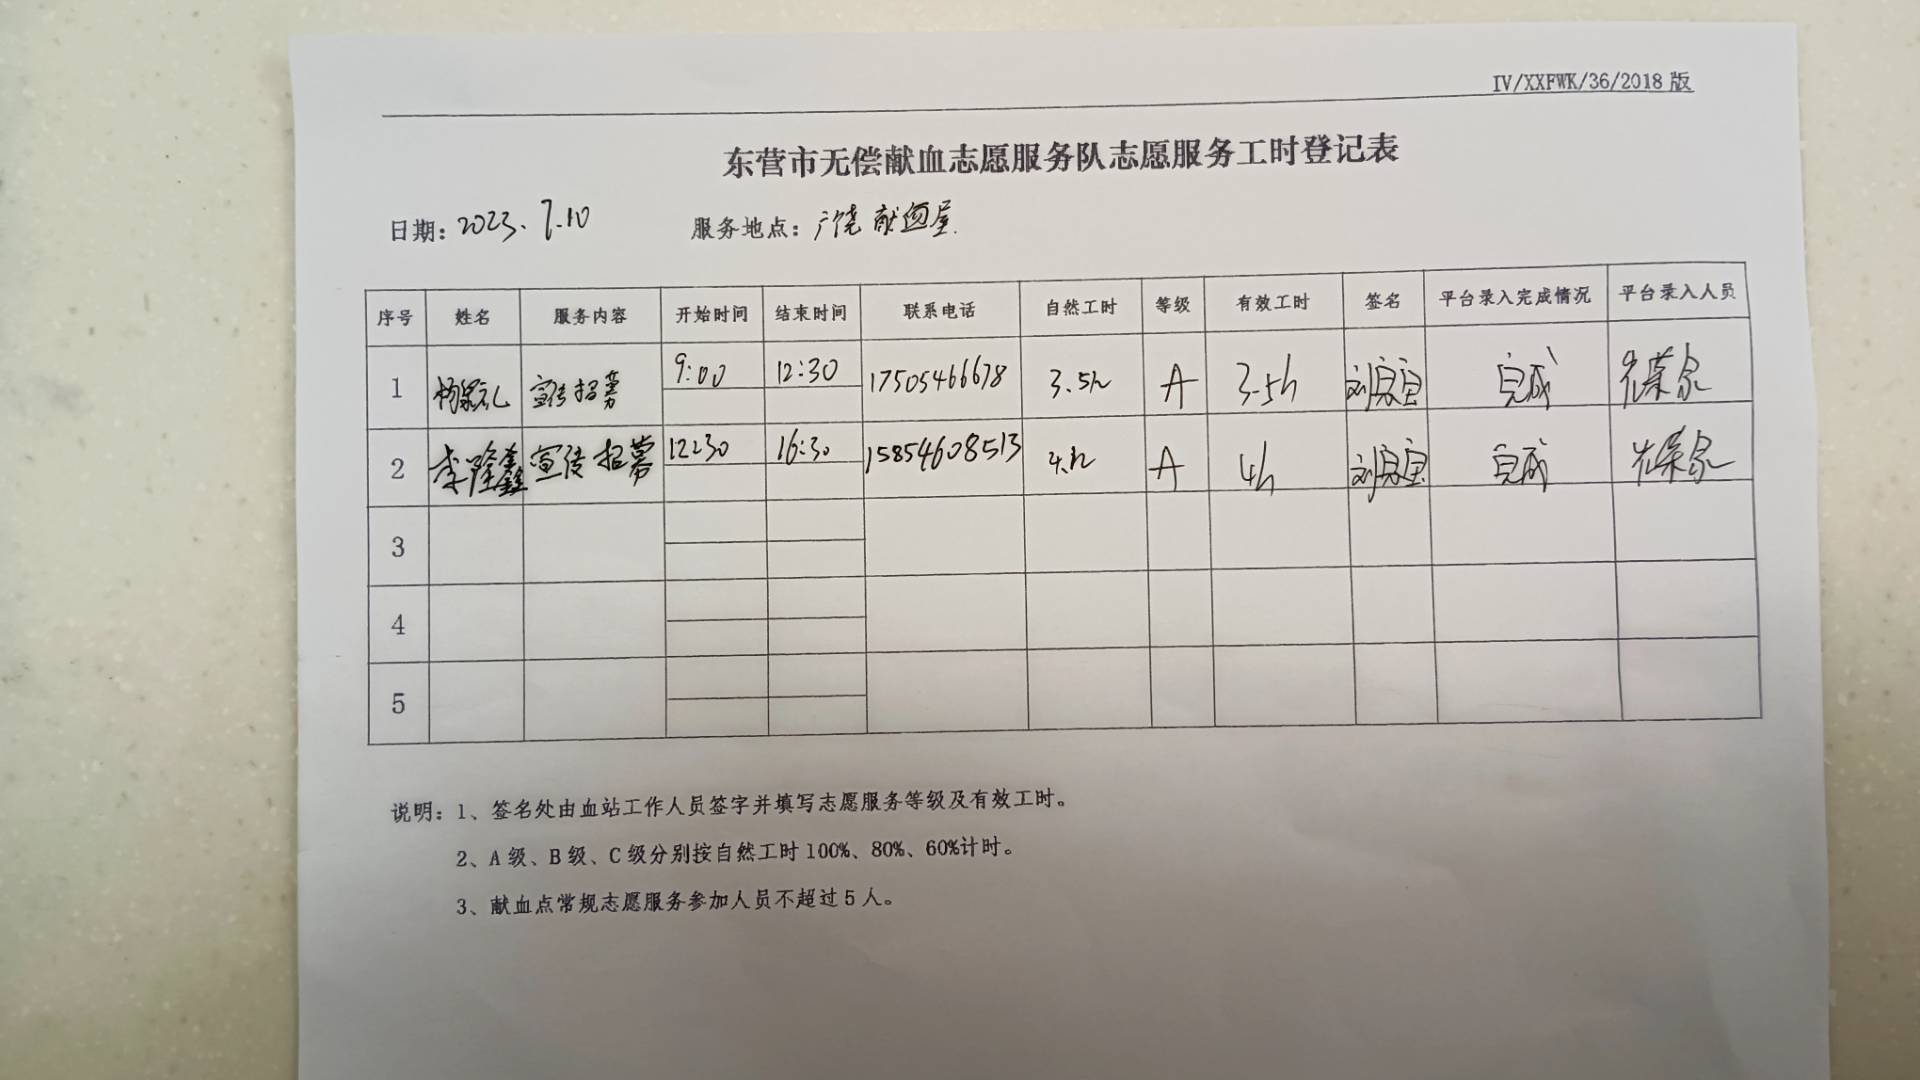 IV/XXFWK/36/2018 版
东营市无偿献血志愿服务队志愿服务工时登记表
日期: 2023.7.10 服务地点: 广饶献血屋.
序号 姓名 服务内容 开始时间 结束时间 联系电话 自然工时 等级 有效工时 签名 平台录入完成情况 平台录入人员
1 宣传招募 9:00 12:30 17505466678 3.5h A 3.5h 完成
2 李隆鑫 宣传招募 12:30 16:30 15854608513 4h A 4h 完成
3
4
5
说明: 1、签名处由血站工作人员签字并填写志愿服务等级及有效工时。
2、A 级、B 级、C 级分别按自然工时 100%、80%、60%计时。
3、献血点常规志愿服务参加人员不超过 5 人。